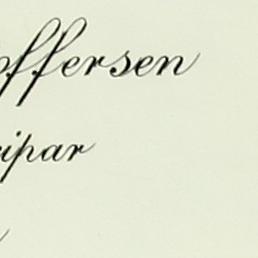 offersen
cipar